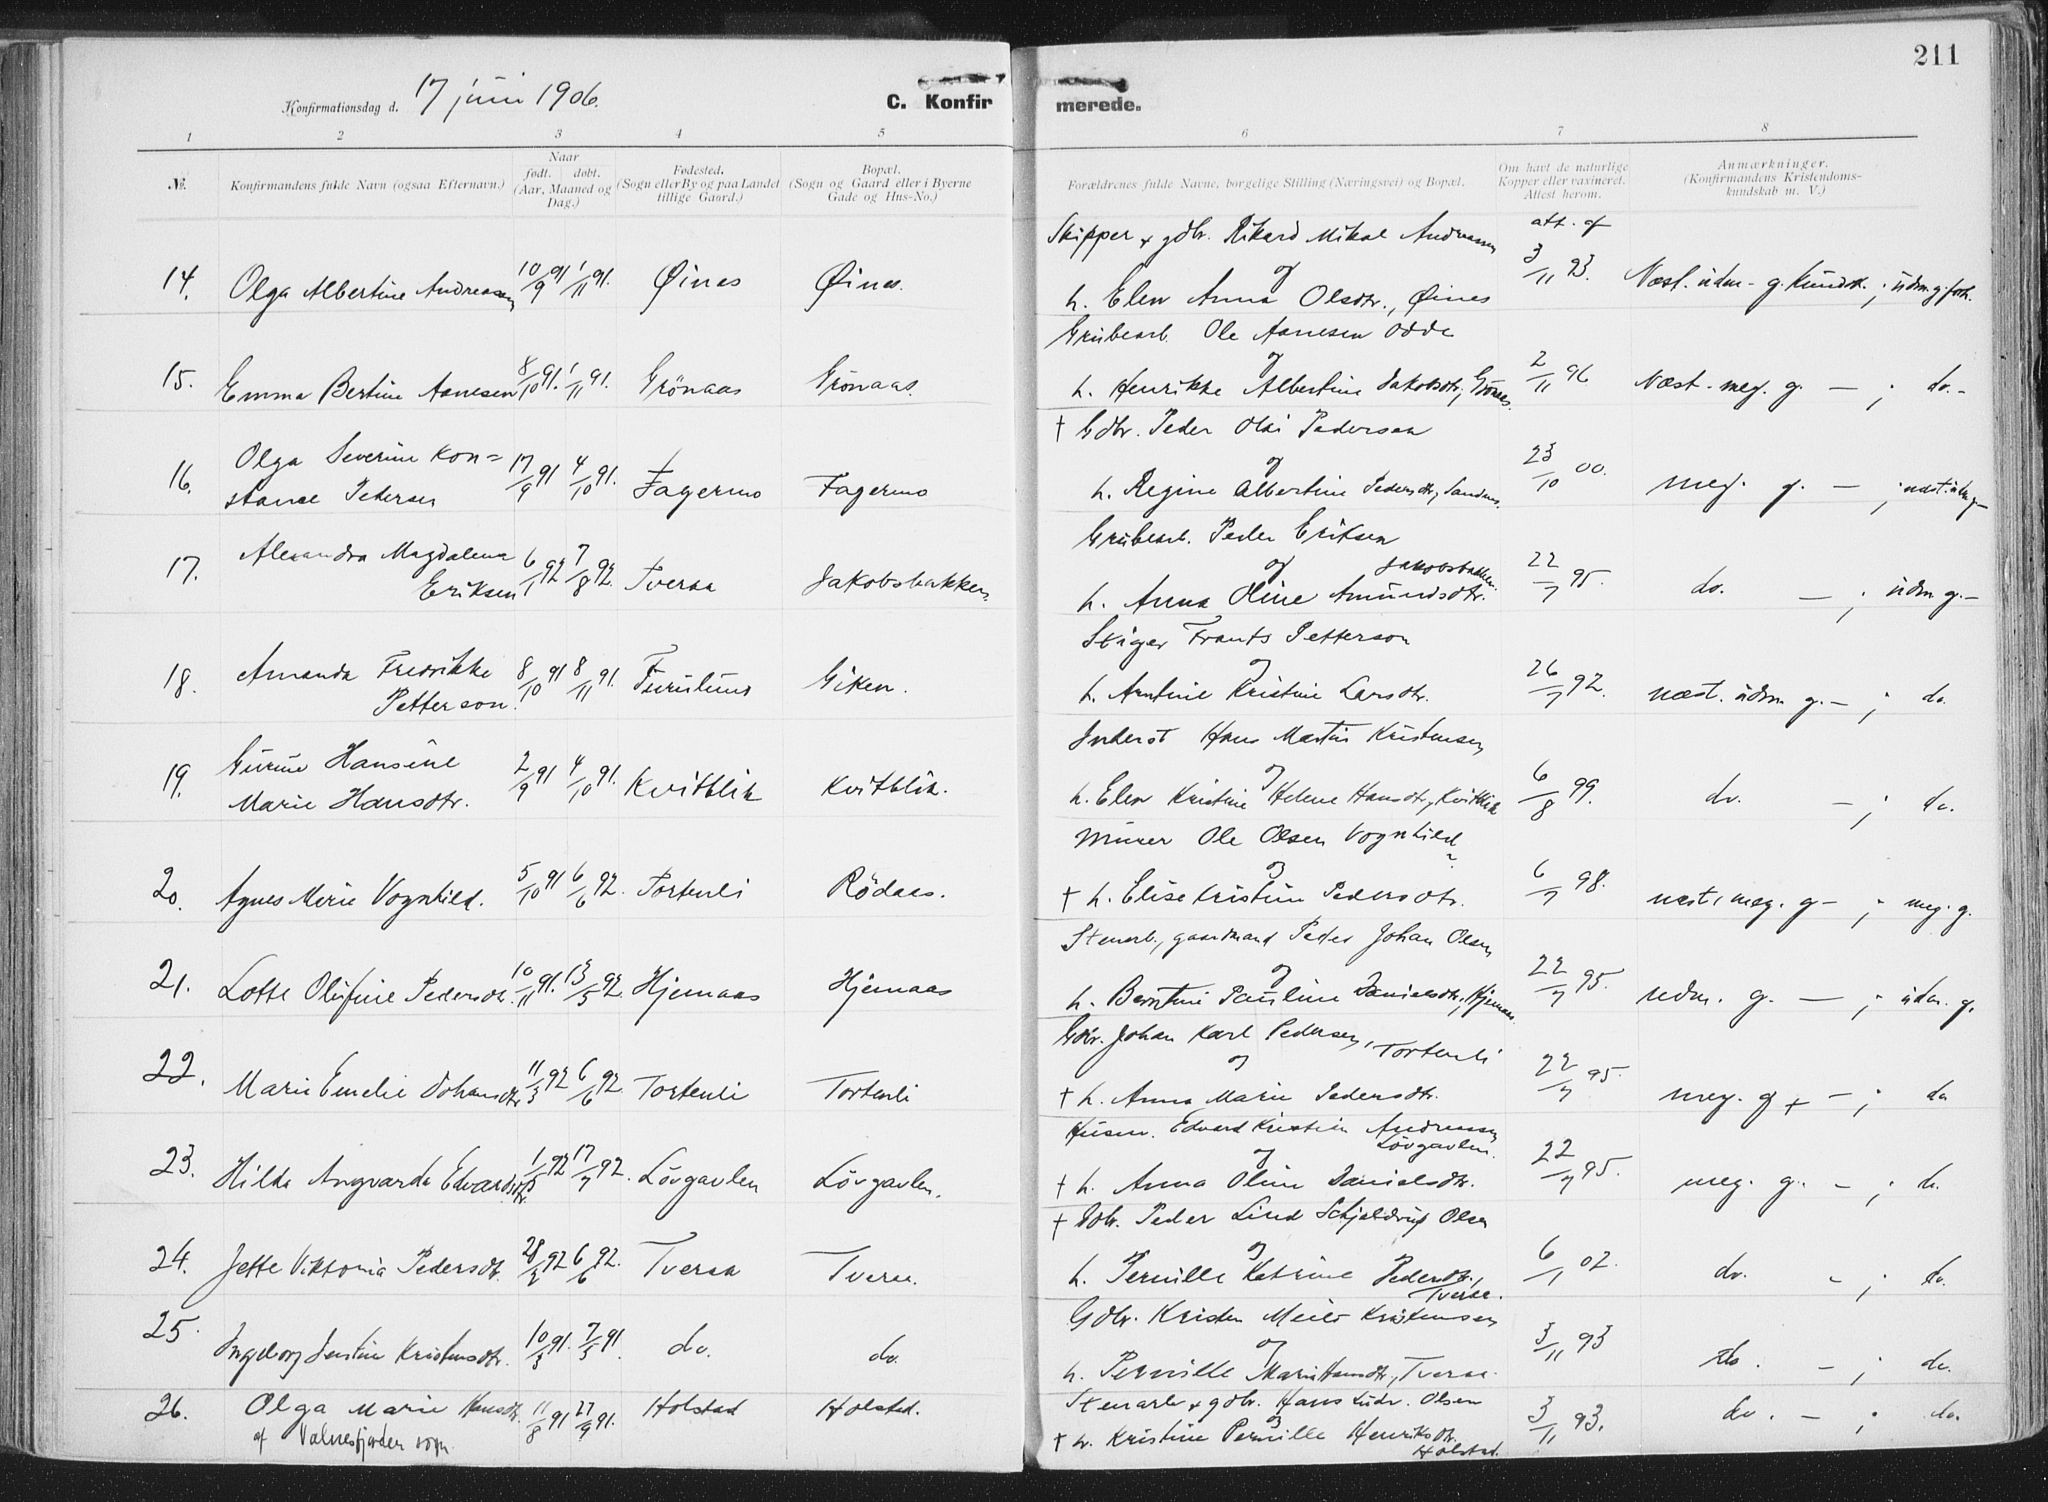 211
Konfirmationsdag d. 17 juni 1906.
C. Konfirmerede.
1 2 3 4 5 6 7 8
№.
Konfirmandens fulde Navn (ogsaa Efternavn.)
Naar
født. døbt.
(Aar, Maaned og
Dag.)
Fødested.
(Sogn eller By og paa Landet
tillige Gaard.)
Bopæl.
(Sogn og Gaard eller i Byerne
Gade og Hus-No.)
Forældrenes fulde Navne, borgelige Stilling (Næringsvei) og Bopæl.
Om havt de naturlige
Kopper eller vaxineret.
Attest herom.
Anmærkninger.
(Konfirmandens Kristendoms-
kundskab m. V.)
Skipper + gdbr. Rikard Mikal Andreassen att. af
14. Olga Albertine Andreassen 10/9 91 1/11 91. Øines Øines. og 3/11 93. Næst. udm. g. kundsk. ; udm. g. forh.
h. Elen Anna Olsdtr., Øines
Grubearb. Ole Aanesen Odde
15. Emma Bertine Aanesen 8/10 91. 1/11 91. Grönaas Grönaas. og 2/11 96 Næst. meg. g. — ; do. -
h. Henrikke Albertine Jakobsdtr, Grönaas.
† Gdbr. Peder Olai Pedersen
16. Olga Severine Kon=
stance Pedersen 17/9 91 4/10 91. Fagermo Fagermo og 23/10 00. meg. g. — ; næst. udm. g.-
h. Regine Albertine Pedersdtr,
Grubearb. Peder Eriksen
17. Alexandra Magdalena
Eriksen 6/1 92 7/8 92. Tveraa Jakobsbakken. og Jakobsbakken 22/7 95. do. — ; udm. g. -
h. Anna Oline Amundsdtr.
Stiger Frants Petterson
18. Amanda Fredrikke
Petterson. 8/10 91 8/11 91. Furulund Giken. og 26/7 92. næst. udm. g. - ; do.
h. Arntine Kristine Larsdtr.
Inderst Hans Martin Kristensen
19. Gurine Hansine
Marie Hansdtr. 2/9 91 4/10 91. Kvitblik Kvitblik. og 6/8 99. do. — ; do.
h. Elen Kristine Helene Hansdtr, Kvitblik
Murer Ole Olsen Vognhild
20. Agnes Marie Vognhild. 5/10 91 6/6 92. Tortenli Rödaas. og 6/7 98. næst. meg. g - ; meg. g.
† h. Elise Kristine Pedersdtr.
Stenarb., gaardmand Peder Johan Olsen
21. Lotte Olufine Pedersdtr. 10/11 91. 13/5 92. Hjemaas Hjemaas og 22/7 95. udm. g. — ; udm. g.
h. Berntine Pauline Danielsdtr, Hjemaas.
Gdbr. Johan Karl Pedersen, Tortenli
22. Marie Emelie Johansdtr 11/3 92 6/6 92 Tortenli Tortenli og 22/7 95. meg. g + - ; do
† h. Anna Marie Pedersdtr.
Husm. Edvard Kristian Andreassen
Lövgavlen.
23. Hilda Angvarda Edvardsdtr. 1/5 92 17/7 92. Lövgavlen Lövgavlen. og 22/7 95. meg. g. - ; do.
† h. Anna Oline Danielsdtr.
† Gdbr. Peder Lind Schjeldrup Olsen
24. Jette Viktoria Pedersdtr. 28/2 92 6/6 92. Tveraa Tveraa. og 6/1 02. do. - ; do.
h. Pernille Katrine Pedersdtr.,
Tveraa.
Gdbr. Kristen Meier Kristensen
25. Ingeborg Justine Kristensdtr. 10/3 91. 7/5 91. do. do. og 3/11 93 do. - ; do.
h. Pernille Marie Hansdtr, Tveraa.
Stenarb + gdbr. Hans Ludv. Olsen
26. Olga Marie Hansdtr. 11/8 91 27/9 91. Holstad Holstad. og 3/11 93. do. - ; do.
af Valnesfjorden sogn
† h. Kristine Pernille Henriksdtr.
Holstad.